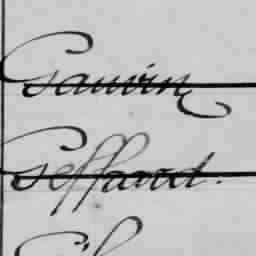 Gauvin
Geffard.